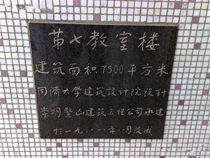 第七教室楼
建筑面积7500平方米
南开大学建筑设计院设计
建筑工程公司承建
一九八八年